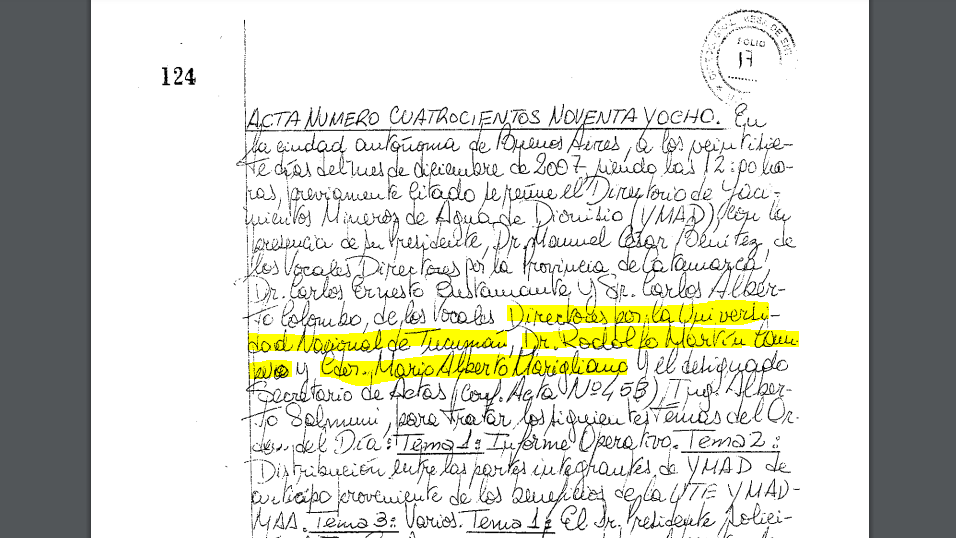 FOLIO
17
124
ACTA NUMERO CUATROCIENTOS NOVENTA Y OCHO. En
la ciudad autónoma de Buenos Aires, a los veintisie-
te días del mes de diciembre de 2007, siendo las 12:00 ho-
ras, previamente citado se reúne el Directorio de Yaci-
mientos Mineros de Agua de Dionisio (YMAD), con la
presencia de su Presidente, Dr. Manuel César Benítez, de
los Vocales Directores por la Provincia de Catamarca,
Dr. Carlos Ernesto Bustamante y Sr. Carlos Alber-
to Colombo, de los Vocales Directores por la Universi-
dad Nacional de Tucumán, Dr. Rodolfo Martín Cam
pero y Cdor. Mario Alberto Marigliano y el designado
Secretario de Actas (Conf. Acta Nº 458), Ing. Alber-
to Salmuni, para tratar los siguientes Temas del Or-
den del Día: Tema 1: Informe Operativo. Tema 2:
Distribución entre las partes integrantes de YMAD de
anticipo proveniente de los beneficios de la UTE YMAD-
MAA. Tema 3: Varios. Tema 1: El Dr. Presidente solici-